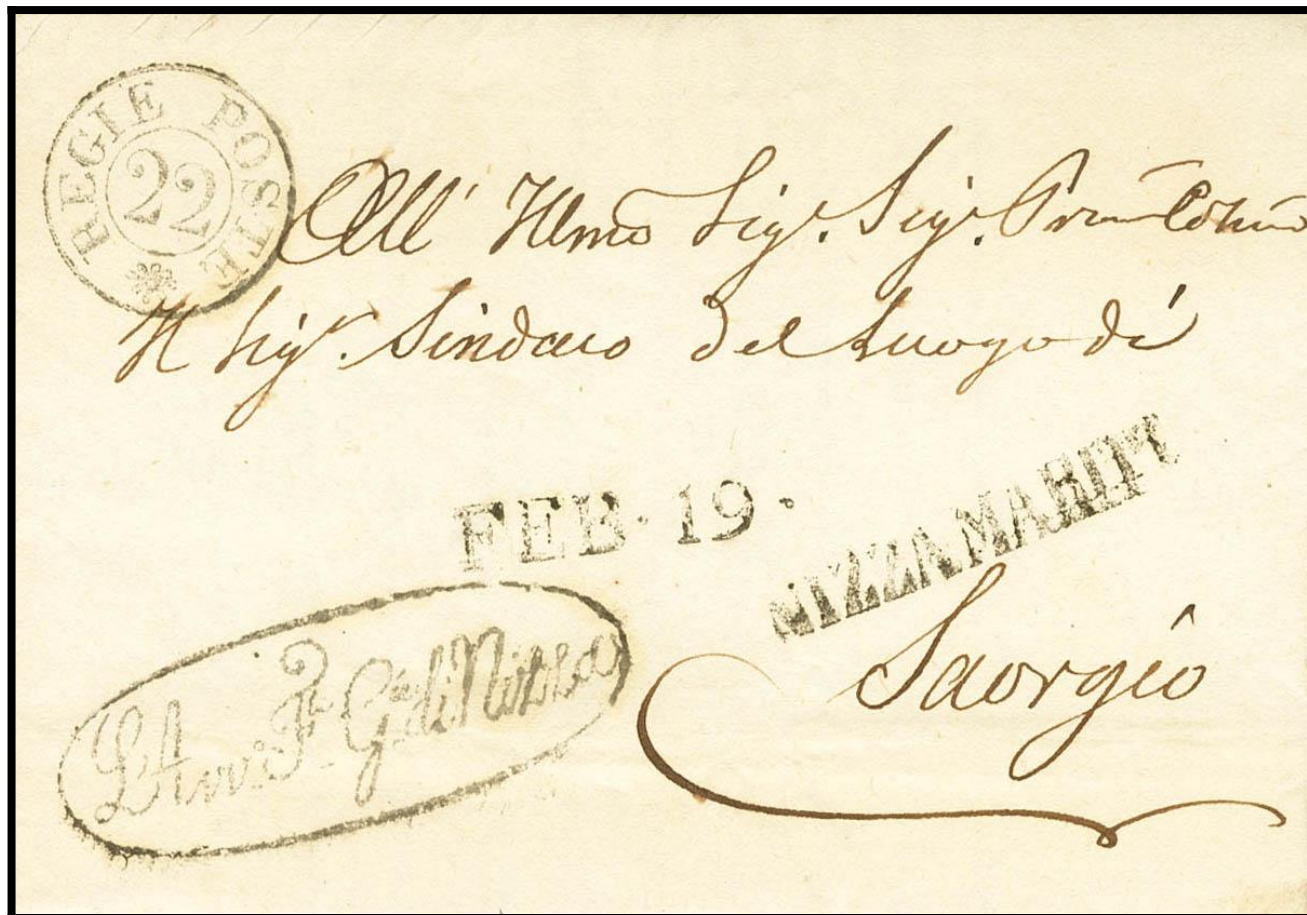 REGIE POSTE
22
All' Illmo Sigr. Sigr. Prn Colmo
Il Sigr. Sindaco del Luogo di
FEB. 19.
NIZZA MARIMa
Saorgio
L'Avv. Fle Gle di Nizza